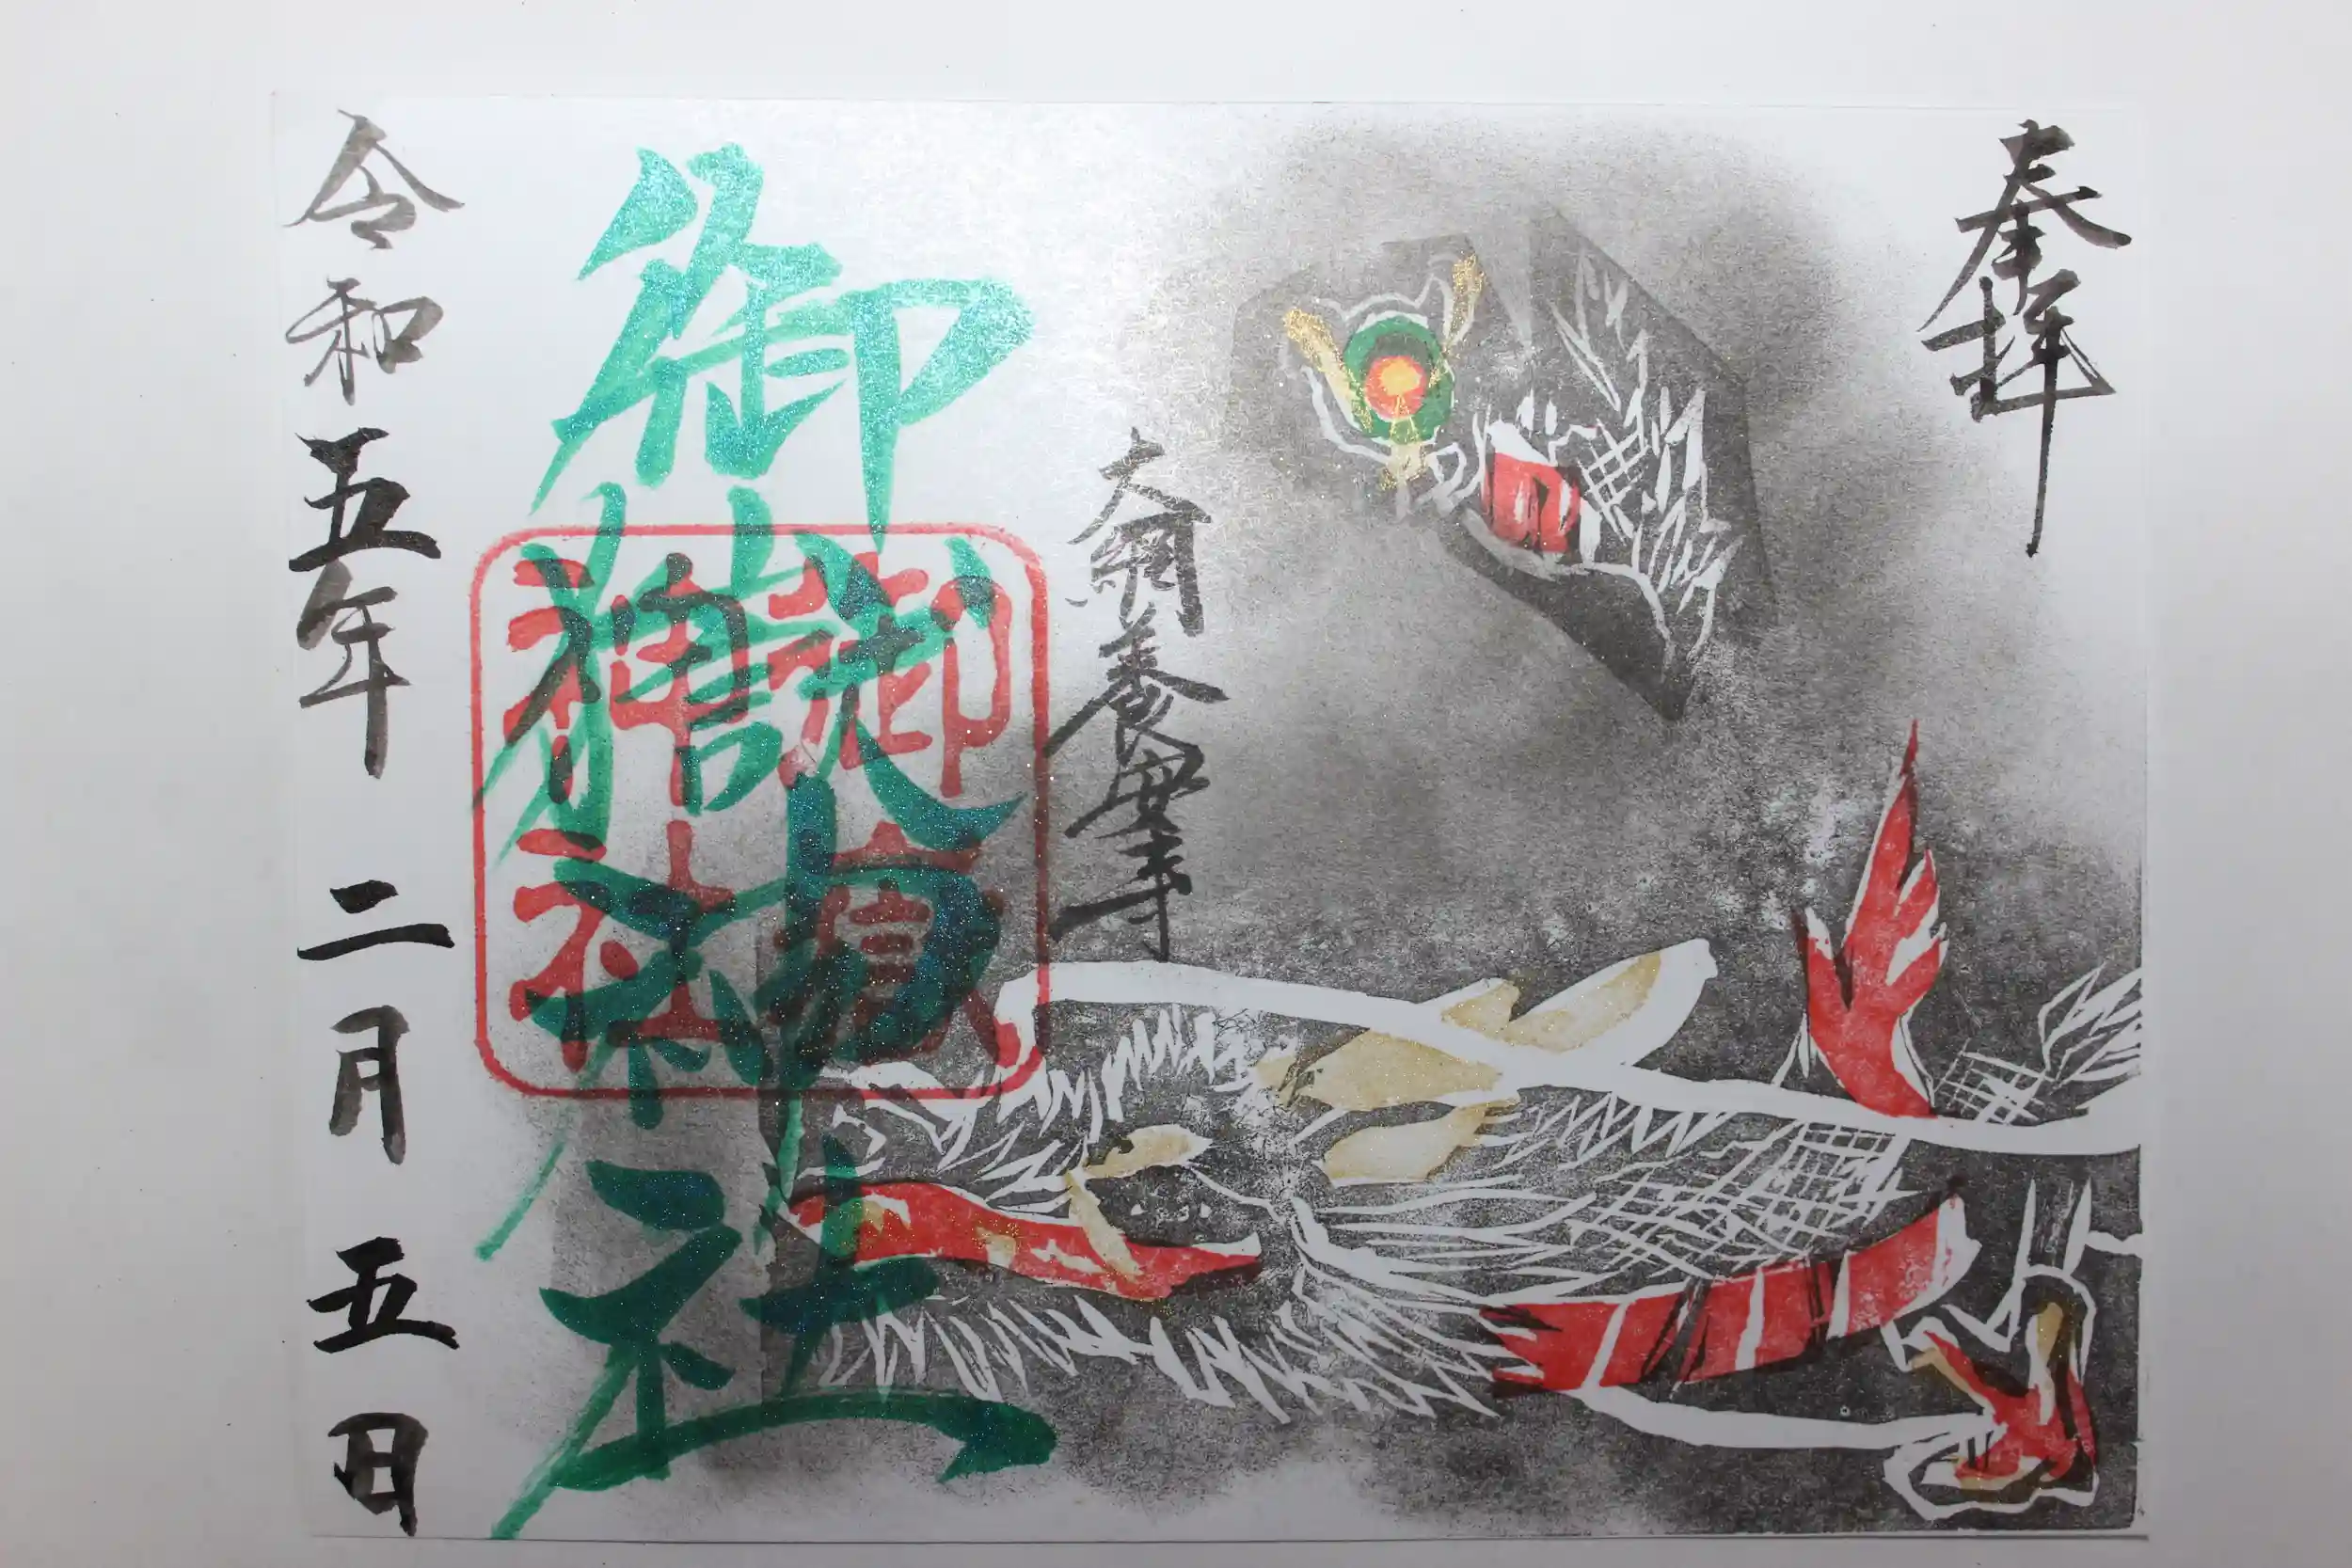 奉拝
大網養安寺
御嶽神社
御嶽神社
令和五年二月五日